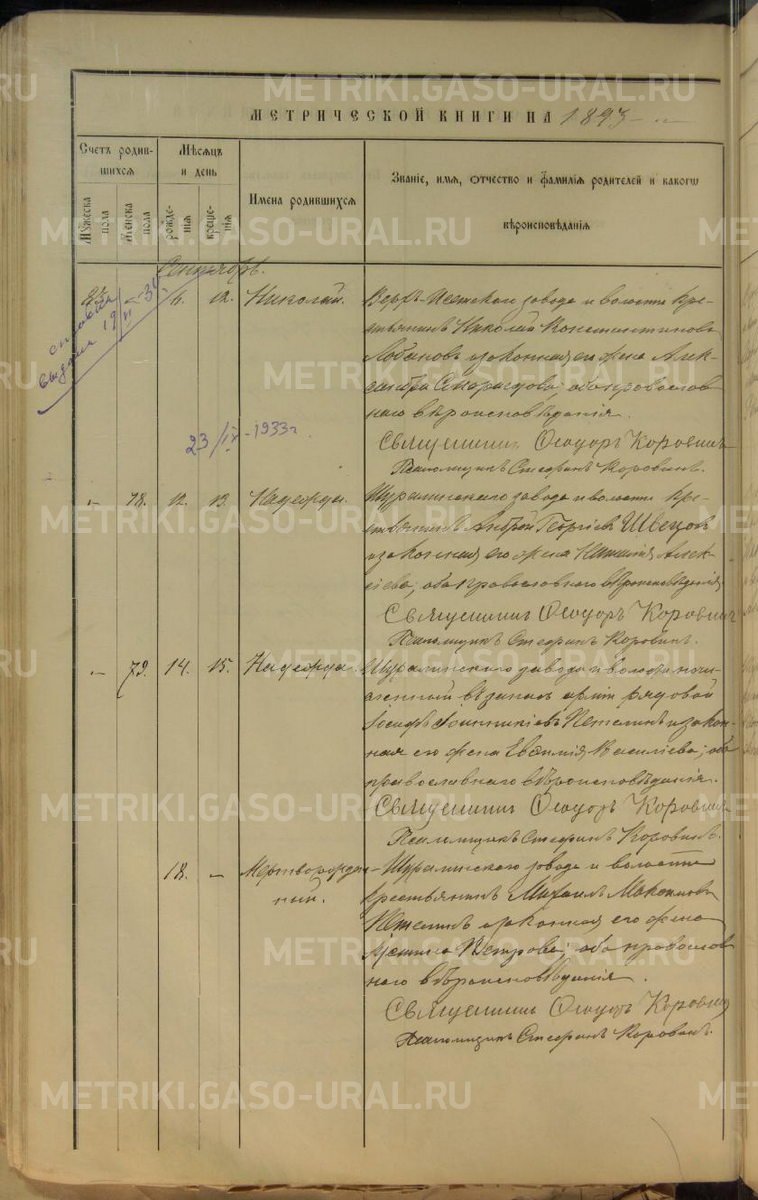 METRIKI.GASO-URAL.RU
МЕТРИЧЕСКОЙ КНИГИ НА 1893
Счетъ родившихся
Мѣсяцъ и день
Имена родившихся
Званіе, имя, отчество и фамилія родителей и какого вѣроисповѣданія
Мужеска пола
Женска пола
рожденія
крещенія
Сентябрь.
6. 12. Николай. Верхъ-Исетскаго завода и волости кре-
стьянинъ Николай Константиновъ
Лобановъ и законная его жена Алек-
сандра; оба православ-
наго вѣроисповѣданія.
выдана 19
23/IX-1933г
Священникъ Ѳеодоръ Коровинъ
Псаломщикъ Стефанъ Коровинъ.
- 78. 12. 13. Надежда. Шуралинскаго завода и волости кре-
стьянинъ Андрей Георгіевъ Швецовъ
и законная его жена Наталія Алек-
сіева; оба православнаго вѣроисповѣданія
Священникъ Ѳеодоръ Коровинъ
Псаломщикъ Стефанъ Коровинъ.
- 79. 14. 15. Надежда. Шуралинскаго завода и волости
въ запасъ арміи рядовой
Іосифъ Іоанникіевъ и закон-
ная его жена Евѳимія Василіева; оба
православнаго вѣроисповѣданія.
Священникъ Ѳеодоръ Коровинъ
Псаломщикъ Стефанъ Коровинъ.
18. - Мертворожден- Шуралинскаго завода и волости
ный. крестьянинъ Михаилъ Максимовъ
и законная его жена
Петрова; оба православ-
наго вѣроисповѣданія.
Священникъ Ѳеодоръ Коровинъ
Псаломщикъ Стефанъ Коровинъ.